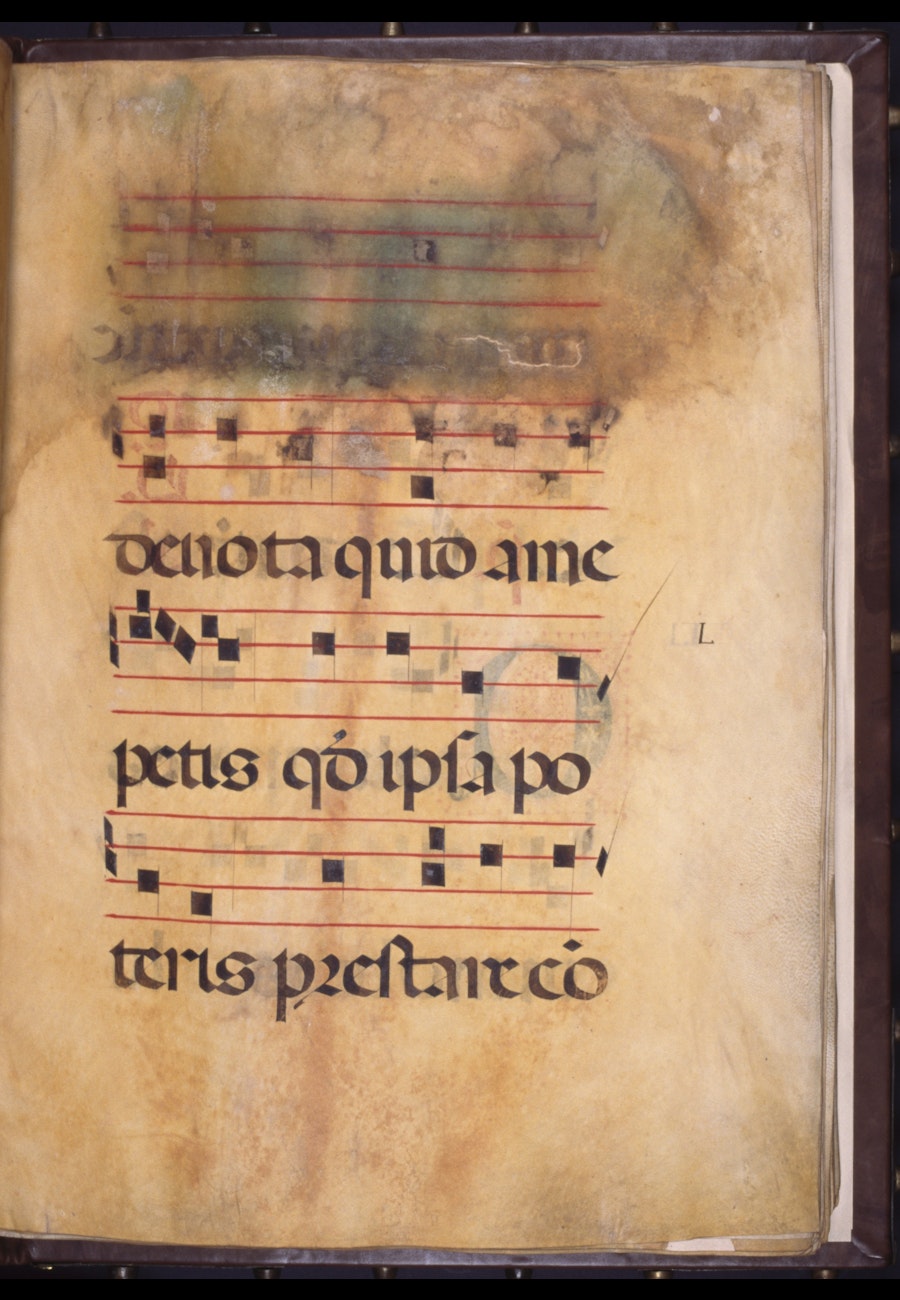 devota quid a me
petis qđ ipsa po
L
teris prestare cō